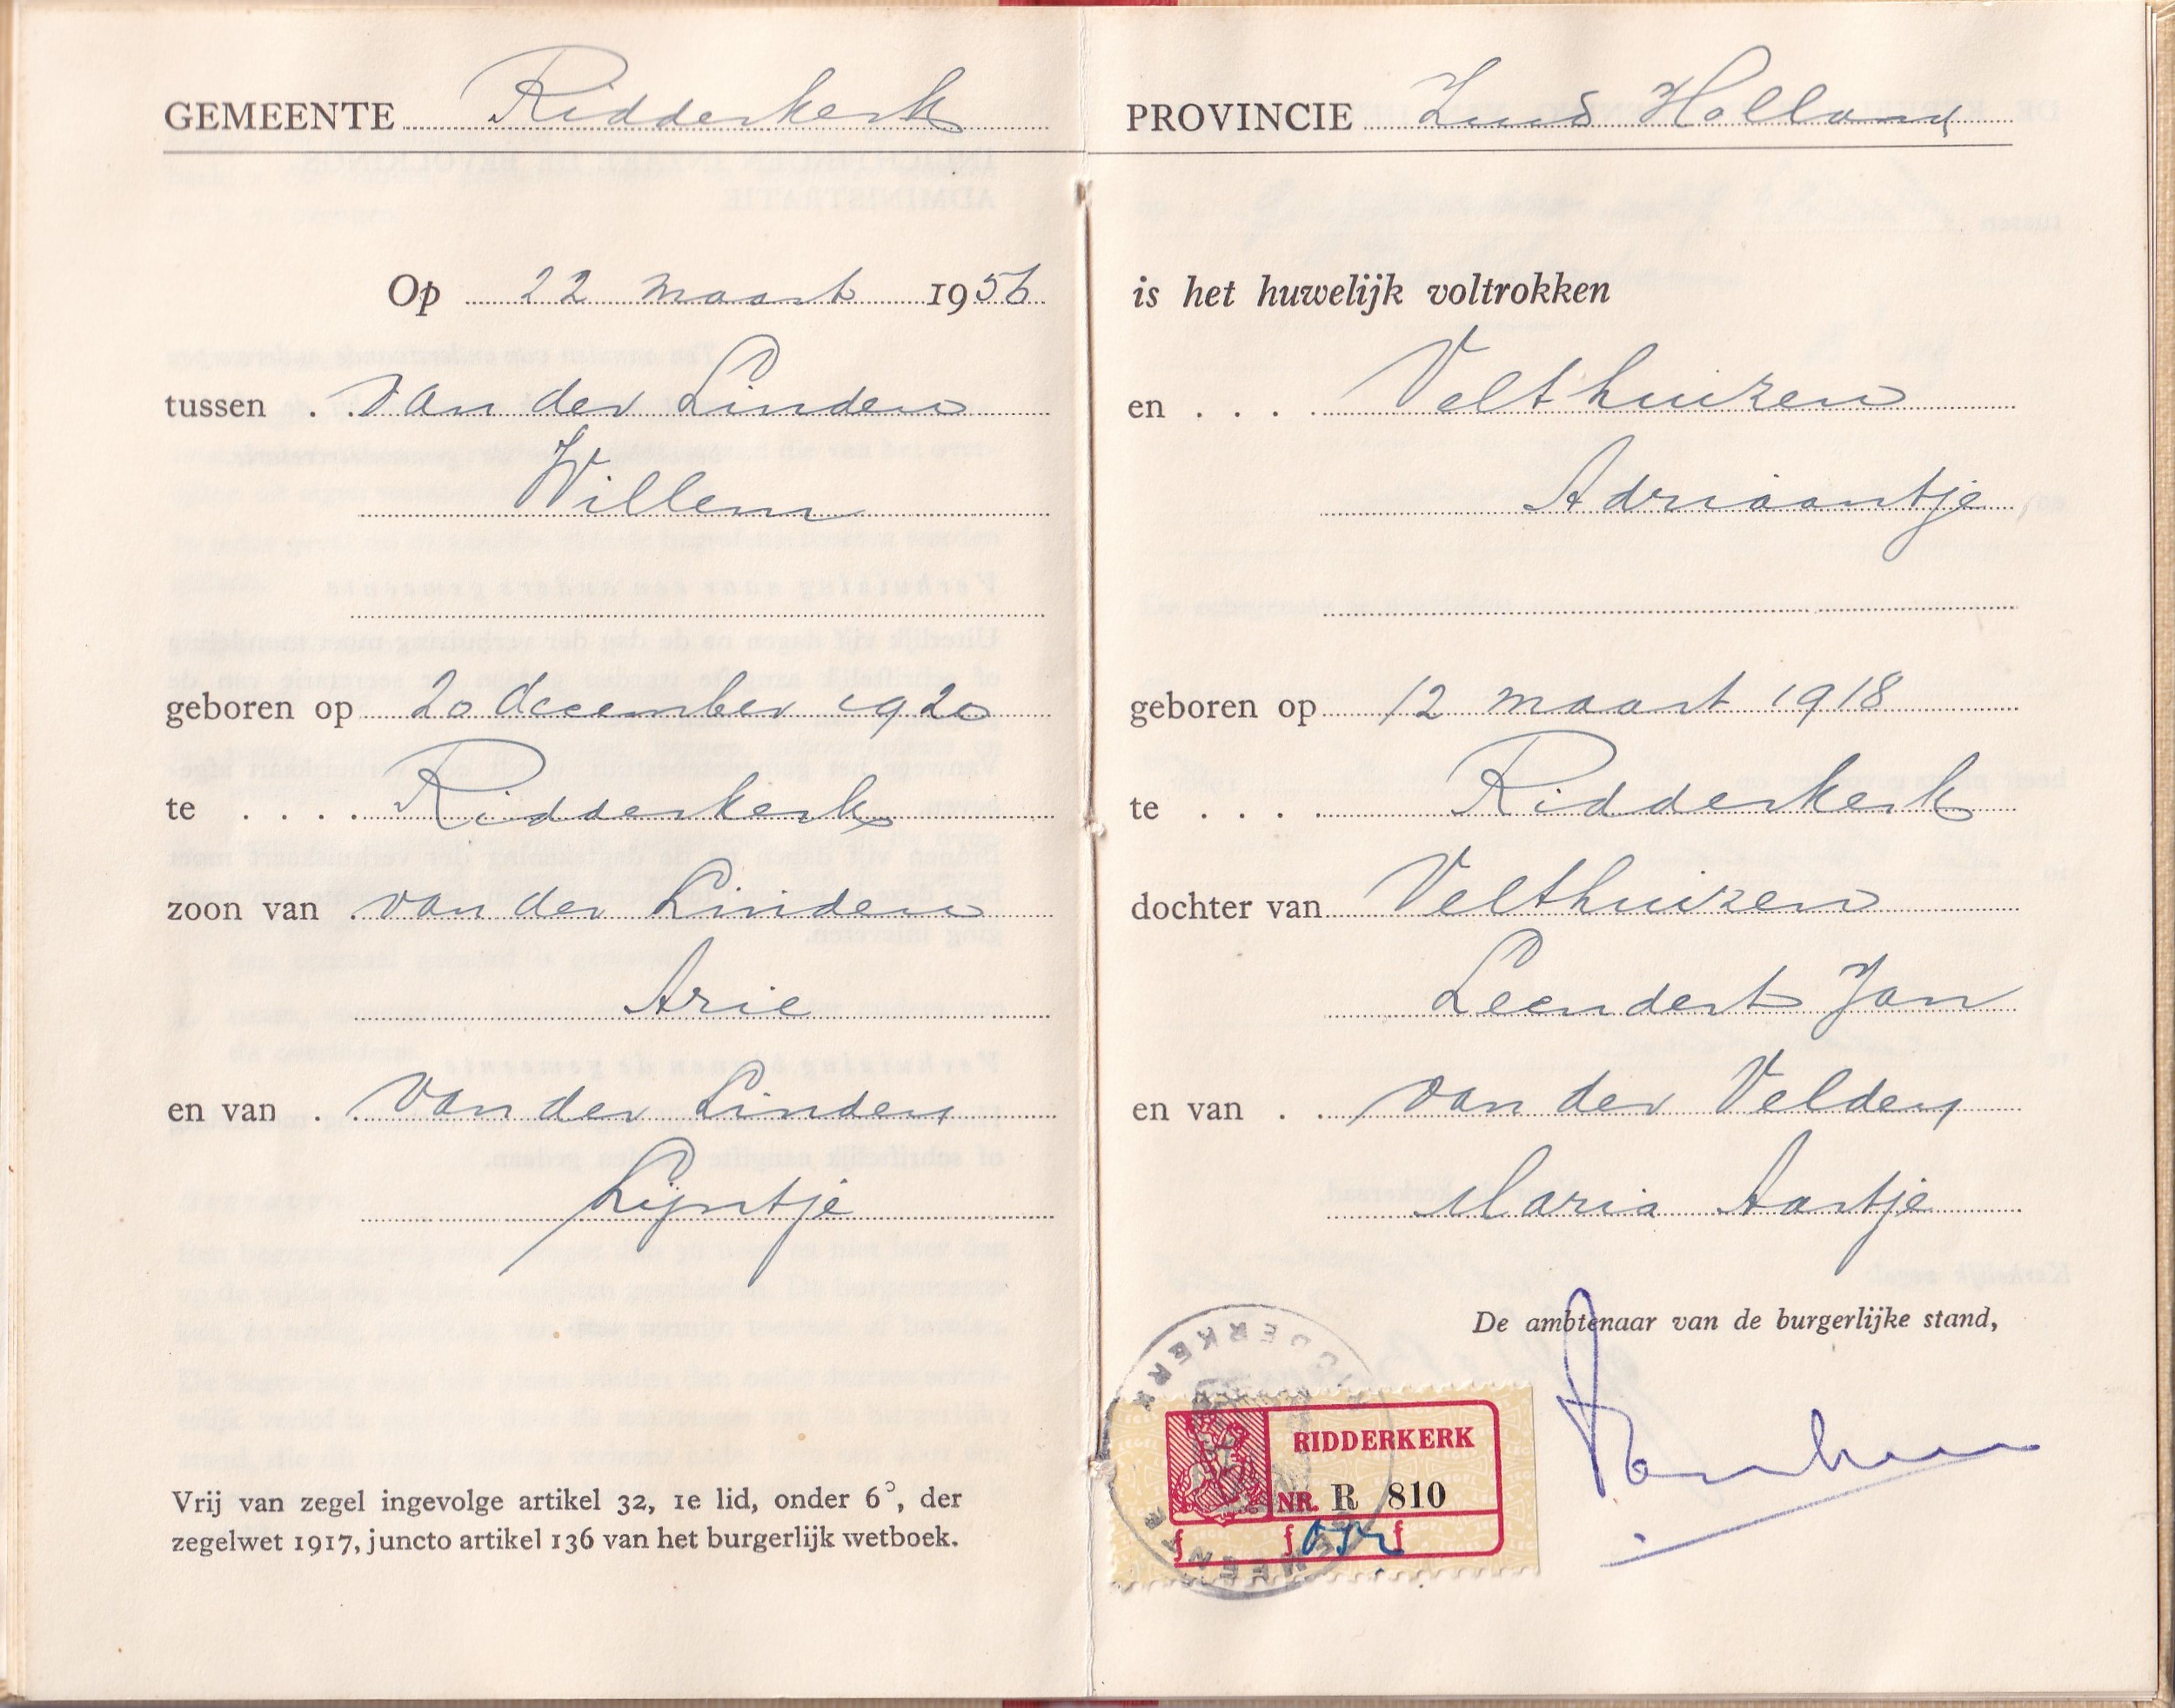 GEMEENTE Ridderkerk
Op 22 maart 1956
tussen . . van der Linden
Willem
geboren op 20 december 1920
te . . . . Ridderkerk
zoon van van der Linden
Arie
en van . van der Linden
Lijntje
Vrij van zegel ingevolge artikel 32, 1e lid, onder 6°, der
zegelwet 1917, juncto artikel 136 van het burgerlijk wetboek.
PROVINCIE Zuid Holland
is het huwelijk voltrokken
en . . . . Velthuizen
Adriaantje
geboren op 12 maart 1918
te . . . . Ridderkerk
dochter van Velthuizen
Leendert Jan
en van . . van der Velden
Maria Aartje
De ambtenaar van de burgerlijke stand,
GEMEENTE RIDDERKERK
RIDDERKERK
NR. R 810
f f f